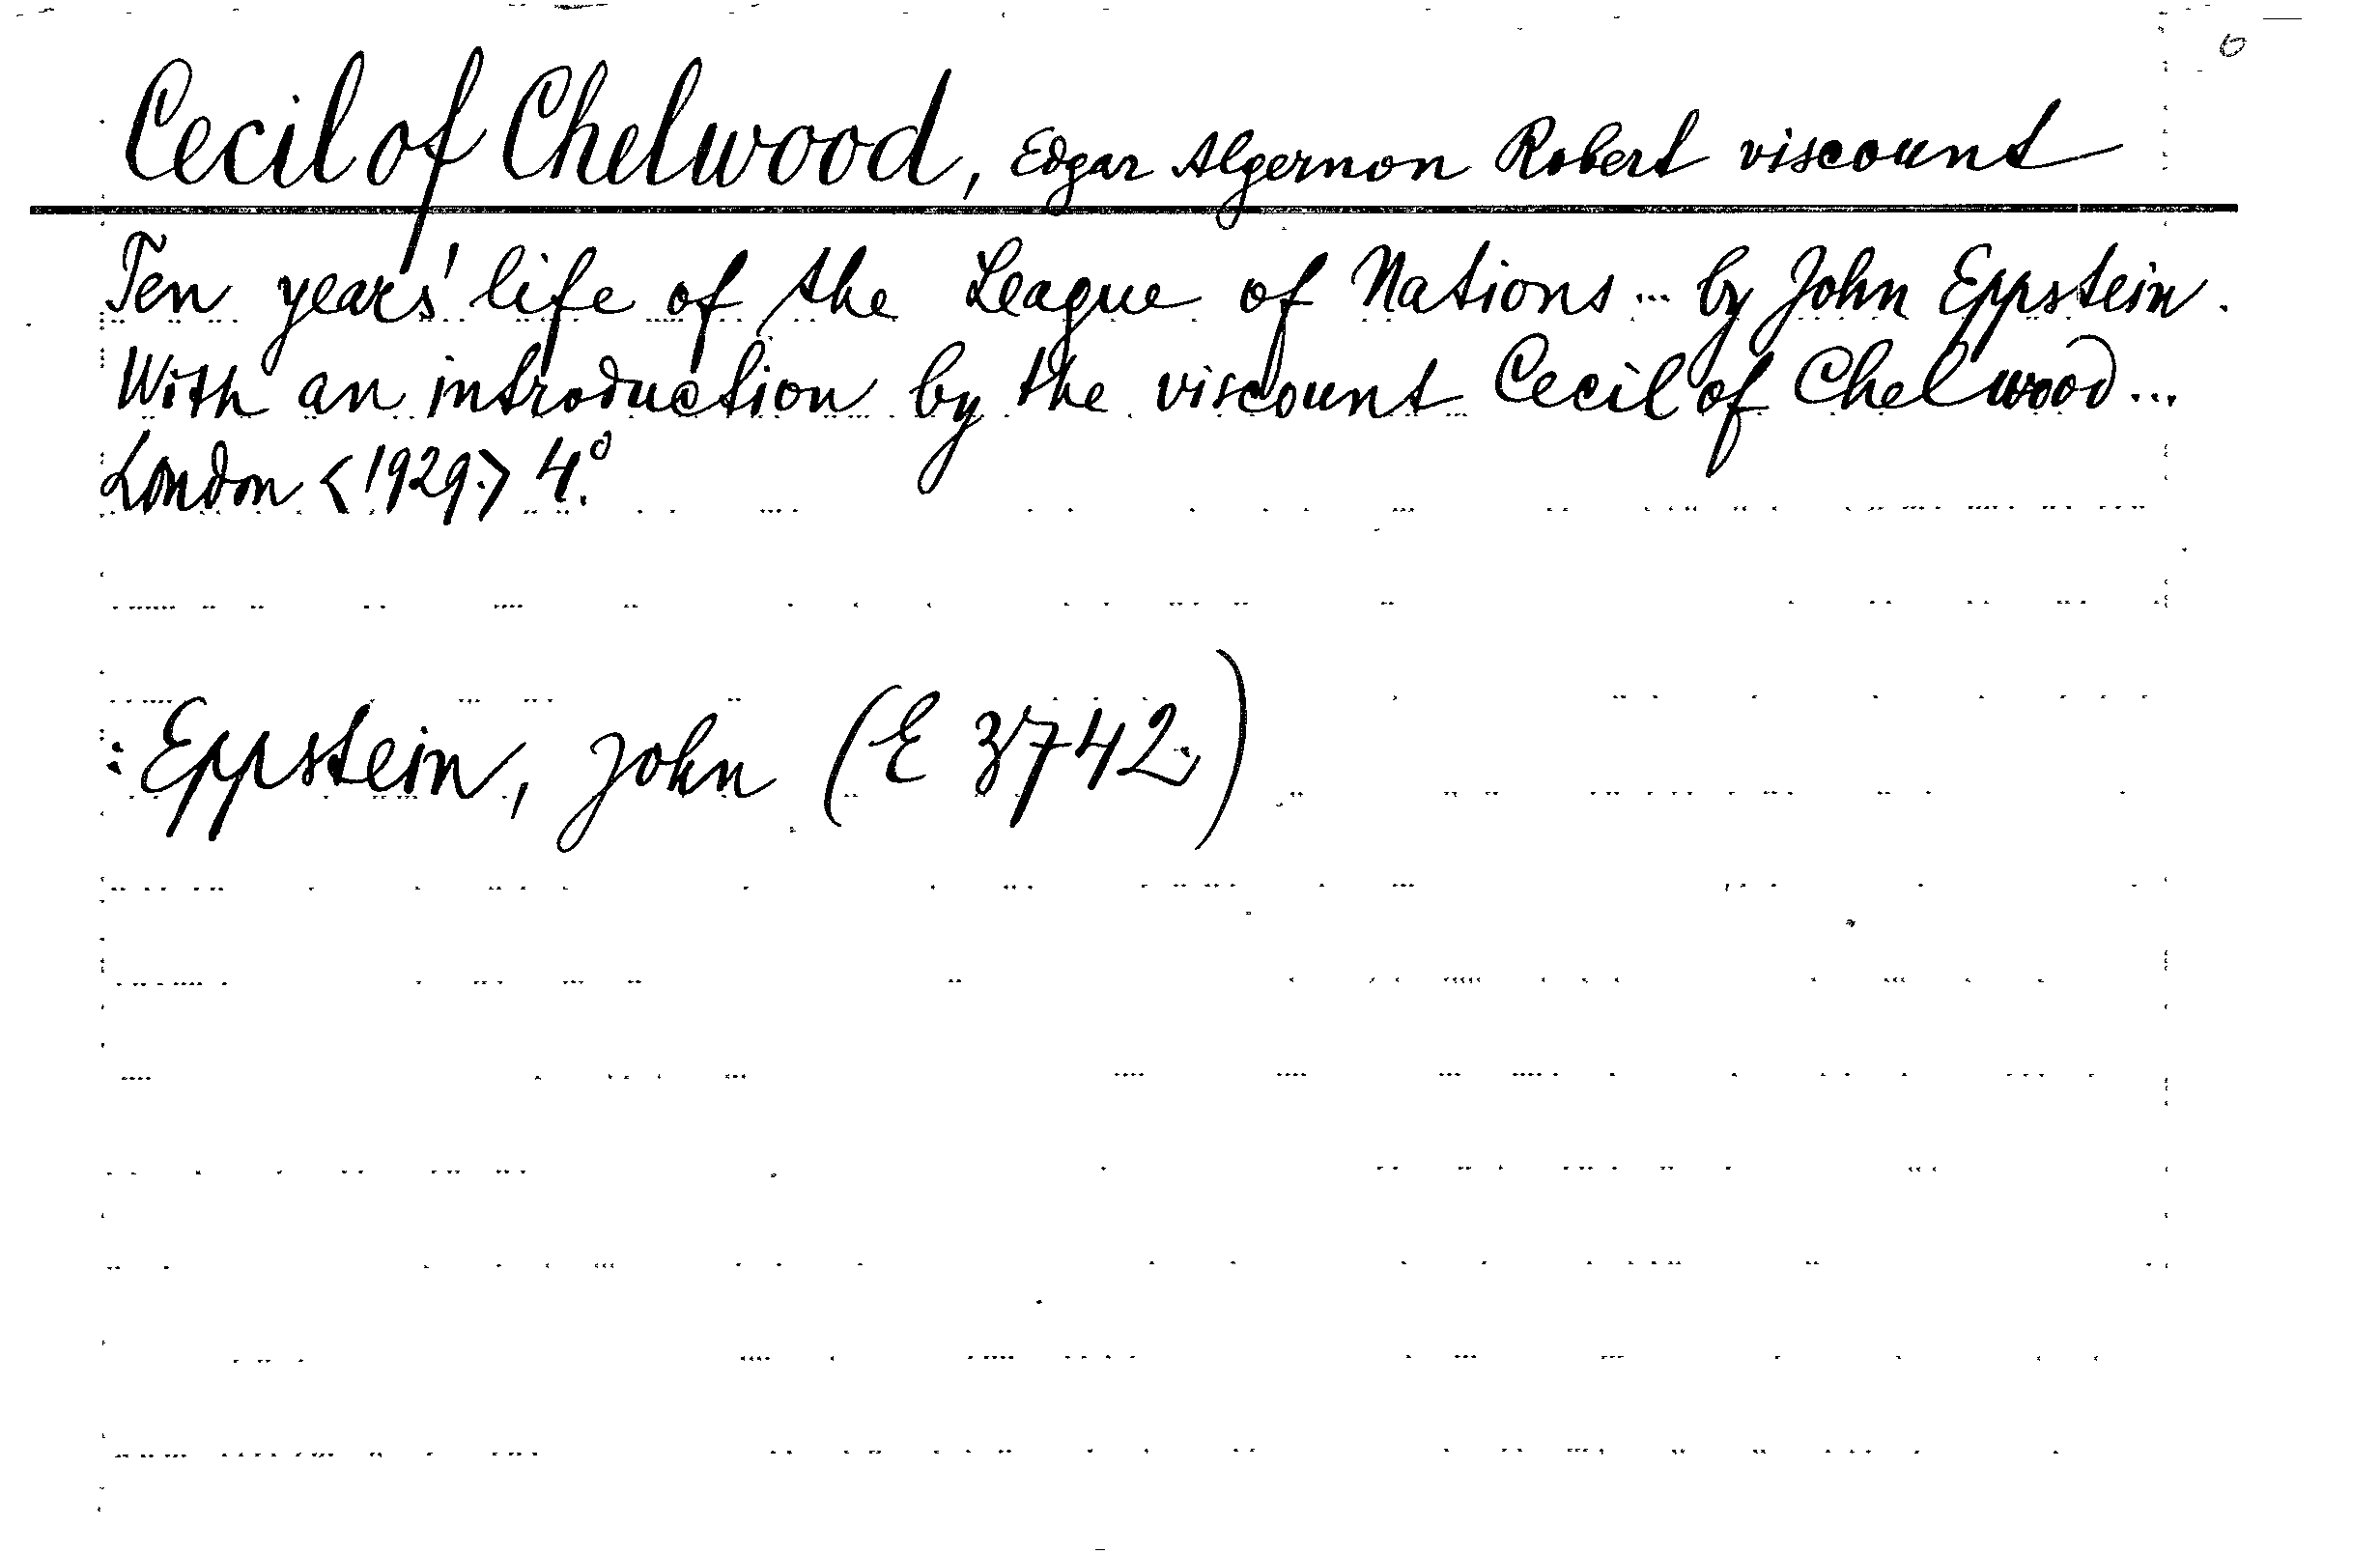 Cecil of Chelwood, Edgar Algernon Robert viscount
Ten years' life of the League of Nations ... by John Eppstein.
With an introduction by the viscount Cecil of Chelwood...
London <1929.> 4.°
: Eppstein, John (E 3742.)